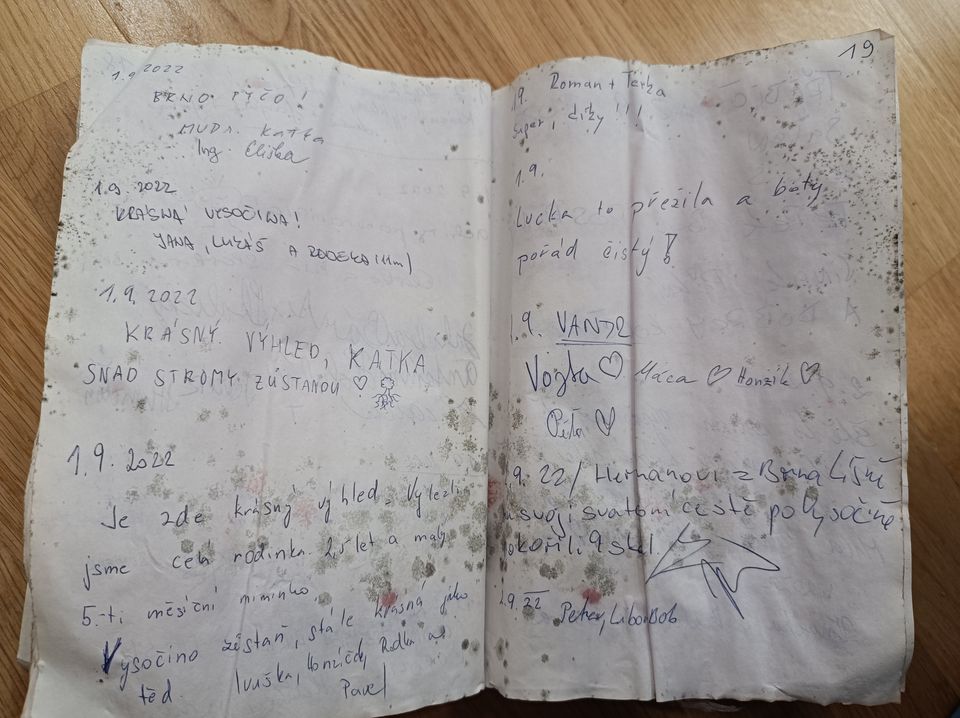 1.9.2022
BRNO TÝČO!
MUDr. Katka
Ing. Eliška
1.9.2022
KRÁSNÁ VYSOČINA!
JANA, LUKÁŠ A
1.9.2022
KRÁSNÝ VÝHLED, KATKA
SNAD STROMY ZŮSTANOU ♡
1.9.2022
Je zde krásný výhled. Vylezli
jsme celá rodinka 2,5 let a malý
5-ti měsíční miminko.
Vysočino zůstaň, stále krásná jako
teď. Ivuška, Honzíček, Radka a
Pavel
19
1.9. Roman + Terka
Super, díky!!!
1.9.
Lucka to přežila a boty
pořád čistý!
1.9. VANDR
Vojta ♡ Máca ♡ Honzík ♡
Péťa ♡
1.9.22/ Heřmanovi z Brna Líšně
na svojí svatební cestě po Vysočině
pokořili 9 skal.
1.9.22 Petr, Libor, Bob